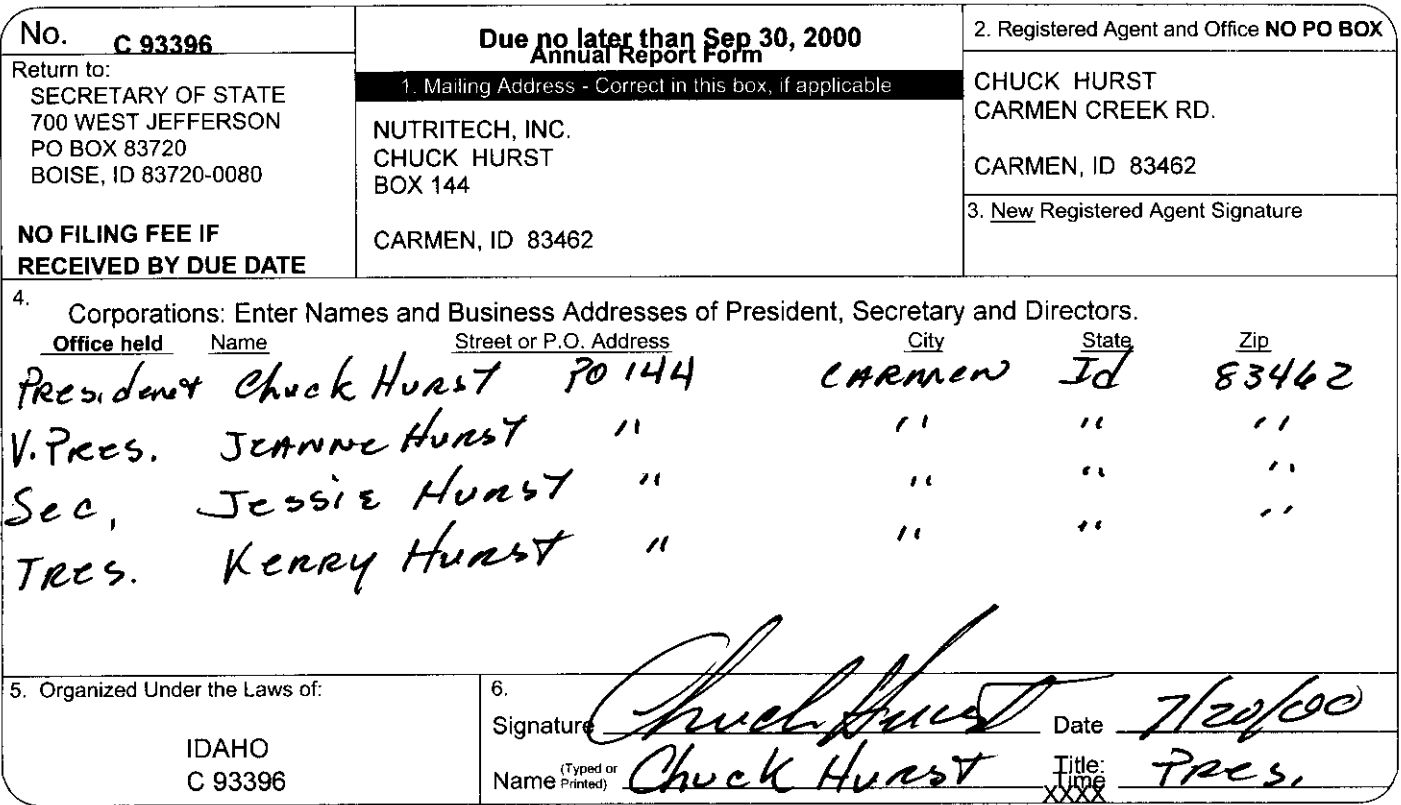 No. C 93396
Return to:
SECRETARY OF STATE
700 WEST JEFFERSON
PO BOX 83720
BOISE, ID 83720-0080
NO FILING FEE IF
RECEIVED BY DUE DATE
Due no later than Sep 30, 2000
Annual Report Form
1. Mailing Address - Correct in this box, if applicable
NUTRITECH, INC.
CHUCK HURST
BOX 144
CARMEN, ID 83462
2. Registered Agent and Office NO PO BOX
CHUCK HURST
CARMEN CREEK RD.
CARMEN, ID 83462
3. New Registered Agent Signature
4. Corporations: Enter Names and Business Addresses of President, Secretary and Directors.
Office held Name Street or P.O. Address City State Zip
President Chuck Hurst PO 144 CARMEN Id 83462
V. Pres. JEANNE Hurst " " " "
Sec, Jessie Hurst " " " "
Tres. Kerry Hurst " " " "
5. Organized Under the Laws of:
IDAHO
C 93396
6.
Signature Chuck Hurst Date 7/20/00
Name (Typed or Printed) Chuck Hurst Title: Pres.
Time
XXXX